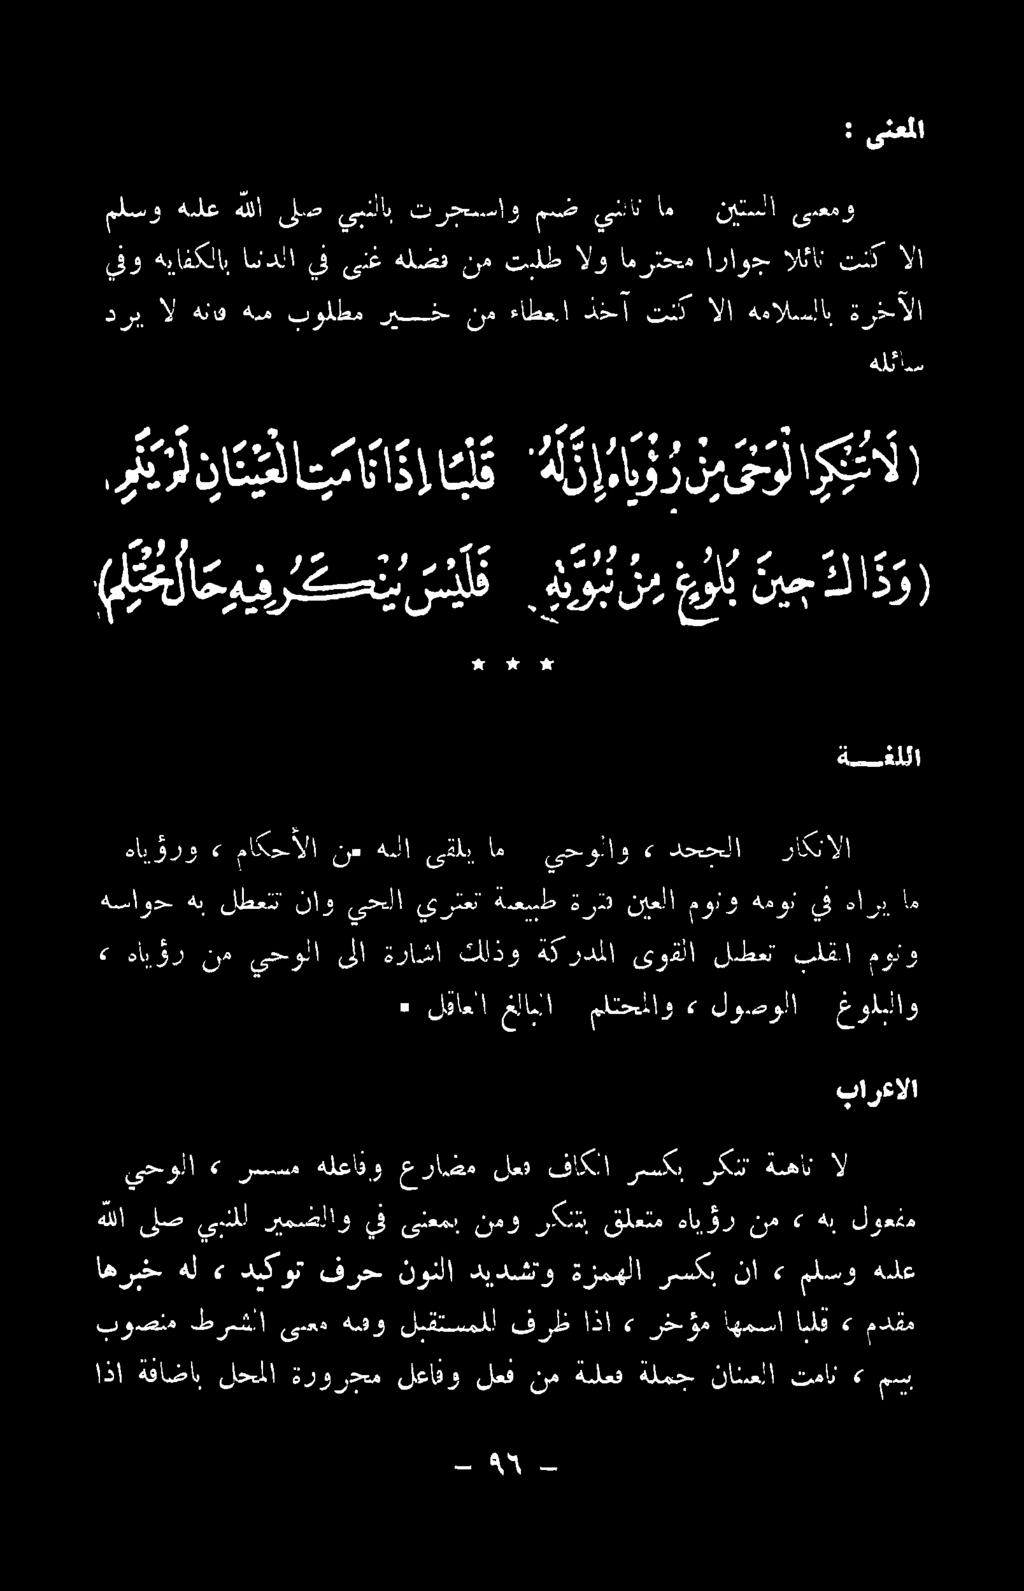 المعنى :
ومعنى البيتين ما نالني ضيم واستجرت بالنبي صلى الله عليه وسلم
الا كنت نائلا جوارا محترما ولا طلبت من فضله غنى في الدنيا بالكفايه وفي
الآخرة بالسلامه الا كنت آخذ العطاء من خـــير مطلوب منه فانه لا يرد
سائله
(لَا تُنْكِرِ الْوَحْيَ مِنْ رُؤْيَاهُ إِنَّ لَهُ قَلْبًا إِذَا نَامَتِ الْعَيْنَانِ لَمْ يَنَمِ
(وَذَاكَ حِينَ بُلُوغٍ مِنْ نُبُوَّتِهِ فَلَيْسَ يُنْكَرُ فِيهِ حَالُ مُحْتَلِمِ)
★ ★ ★
اللغـــة
الانكار الجحد ، والوحي ما يلقى اليه من الأحكام ، ورؤياه
ما يراه في نومه ونوم العين فترة طبيعية تعتري الحي وان تتعطل به حواسه
ونوم القلب تعطيل القوى المدركة وذلك اشارة الى الوحي من رؤياه ،
والبلوغ الوصول ، والمحتلم البالغ العاقل .
الاعراب
لا ناهية تنكر بكسر الكاف فعل مضارع وفاعله مستتر ، الوحي
مفعول به ، من رؤياه متعلق بتنكر ومن بمعنى في والضمير للنبي صلى الله
عليه وسلم ، ان بكسر الهمزة وتشديد النون حرف توكيد ، له خبرها
مقدم ، قلبا اسمها مؤخر ، اذا ظرف للمستقبل وفيه معنى الشرط منصوب
بينم ، نامت العينان جملة فعلية من فعل وفاعل مجرورة المحل باضافة اذا
– ٩٦ –